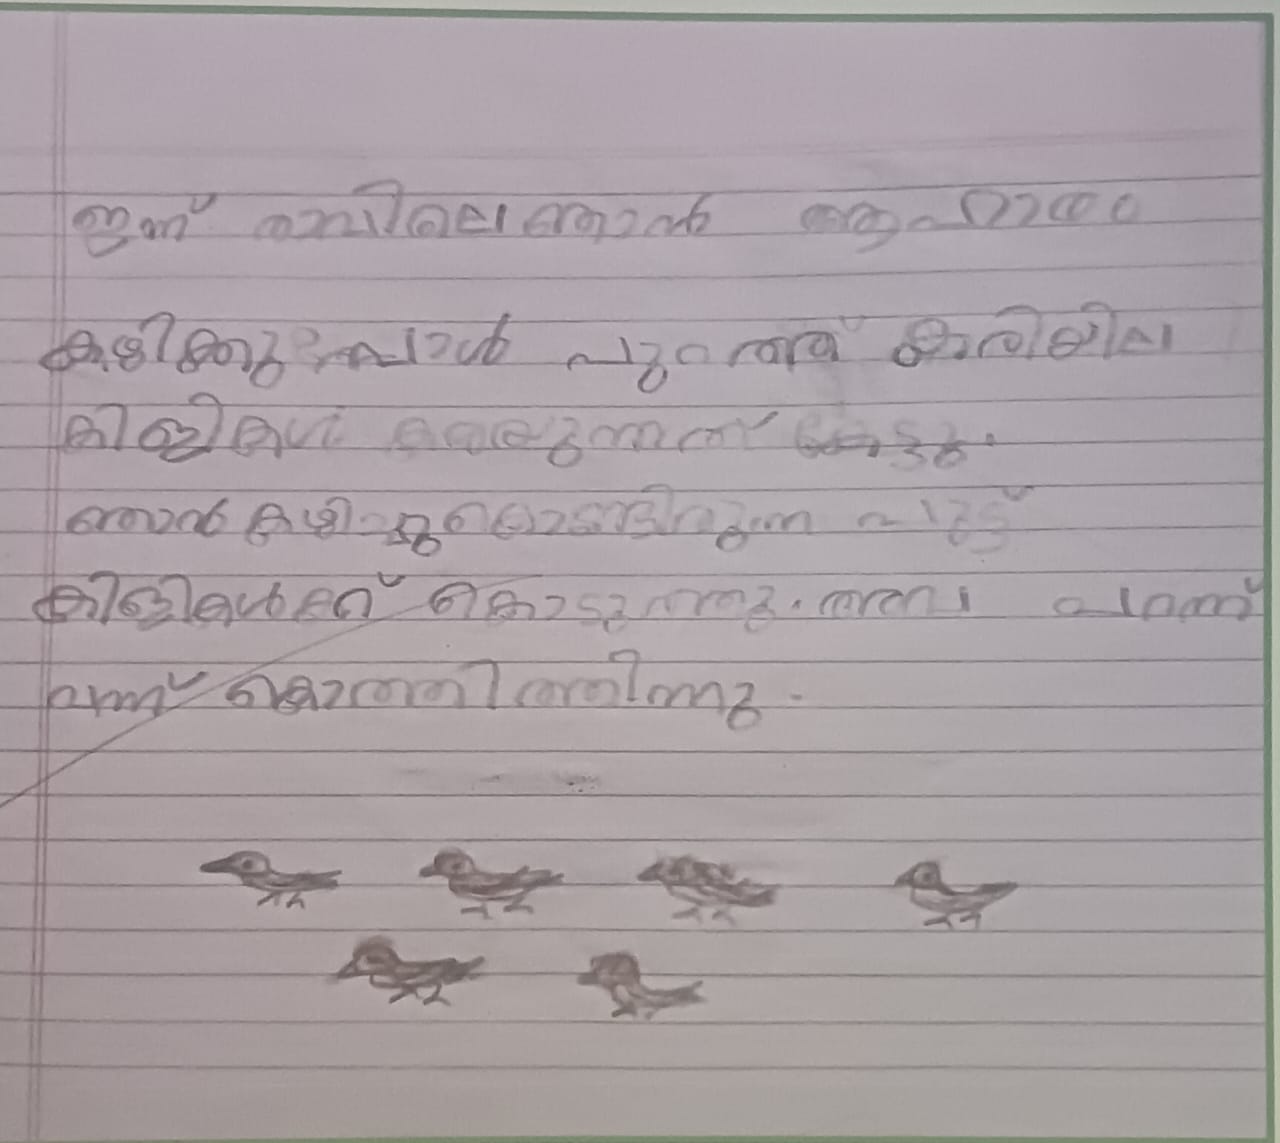 ഇന്ന് രാവിലെ ഞാൻ ആഹാരം
കഴിക്കുമ്പോൾ പുറത്ത് കരിയില
കിളികൾ കരയുന്നത് കേട്ടു.
ഞാൻ കഴിച്ചുകൊണ്ടിരുന്ന പുട്ട്
കിളികൾക്ക് കൊടുത്തു. അവ പറന്ന്
വന്ന് കൊത്തിത്തിന്നു.